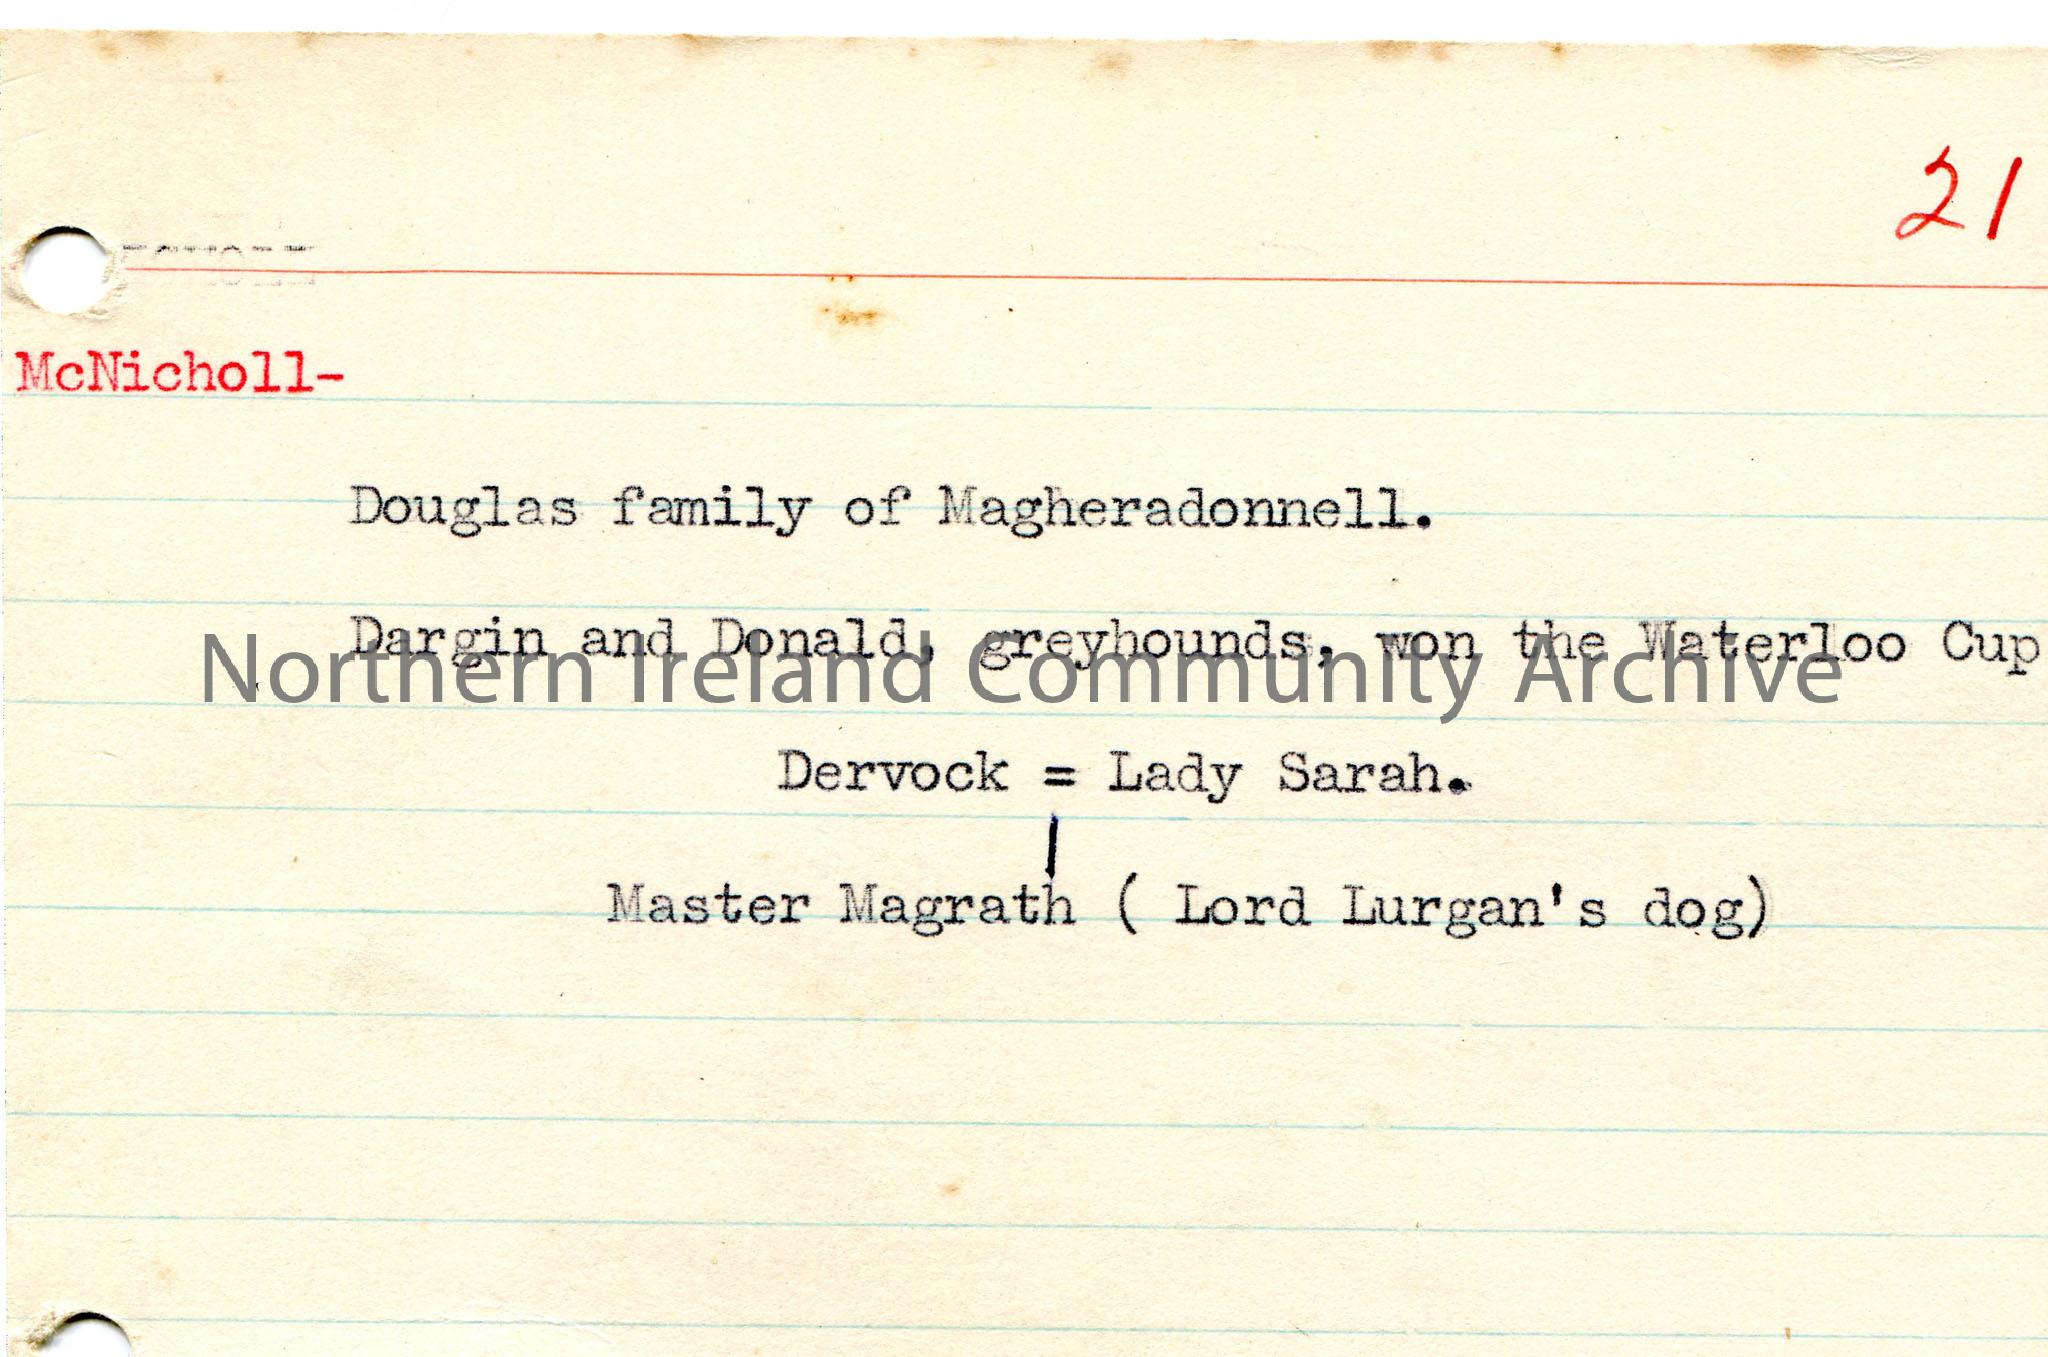 21
McNicholl-
Douglas family of Magheradonnell.
Dargin and Donald, greyhounds, won the Waterloo Cup
Northern Ireland Community Archive
Dervock = Lady Sarah.
Master Magrath ( Lord Lurgan's dog)